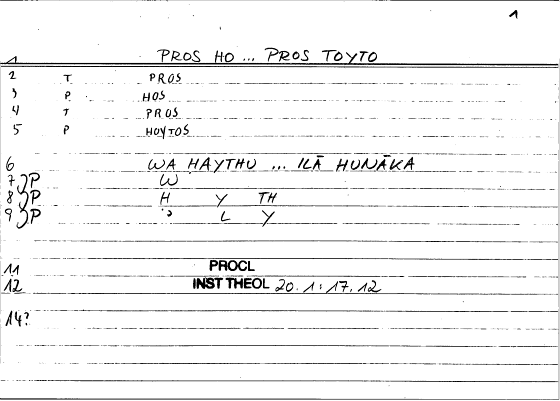 1
1 PROS HO ... PROS TOYTO
2 T PROS
3 P HOS
4 T PROS
5 P HOYTOS
6 WA HAYTHU ... ILĀ HUNĀKA
7 P W
8 P H Y TH
9 P ' L Y
11 PROCL
12 INST THEOL 20.1: 17.12
14?